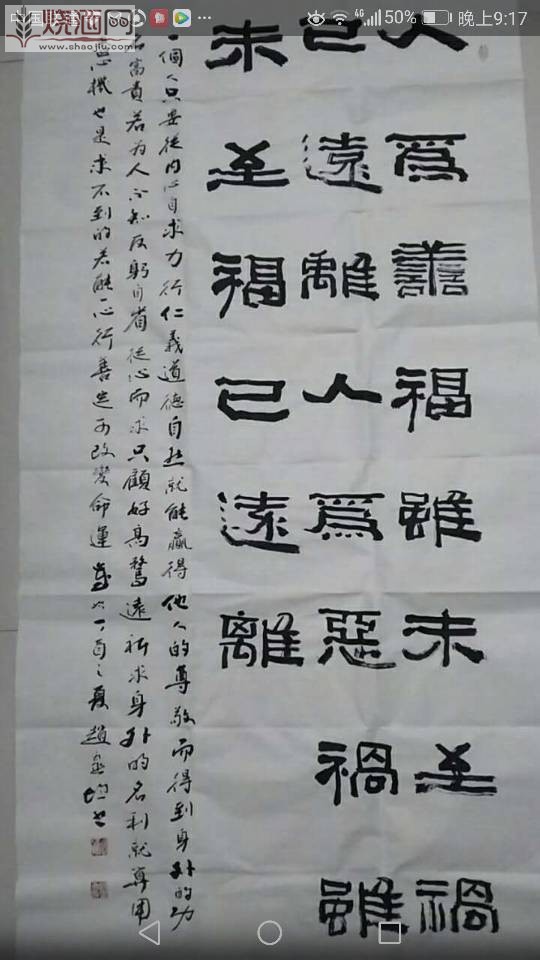 中国联通 ... 4G 50% 晚上9:17
烧酒网
www.shaojiu.com
人為善福雖未至禍
已遠離人為惡禍雖
未至福已遠離
一個人只要從內心自求力行仁義道德自然就能贏得他人的尊敬而得到身外的功
名富貴若為人不知反躬自省從心而求只顧好高騖遠祈求身外的名利就算用
盡心機也是求不到的若能一心行善定可改變命運 歲次丁酉之夏趙